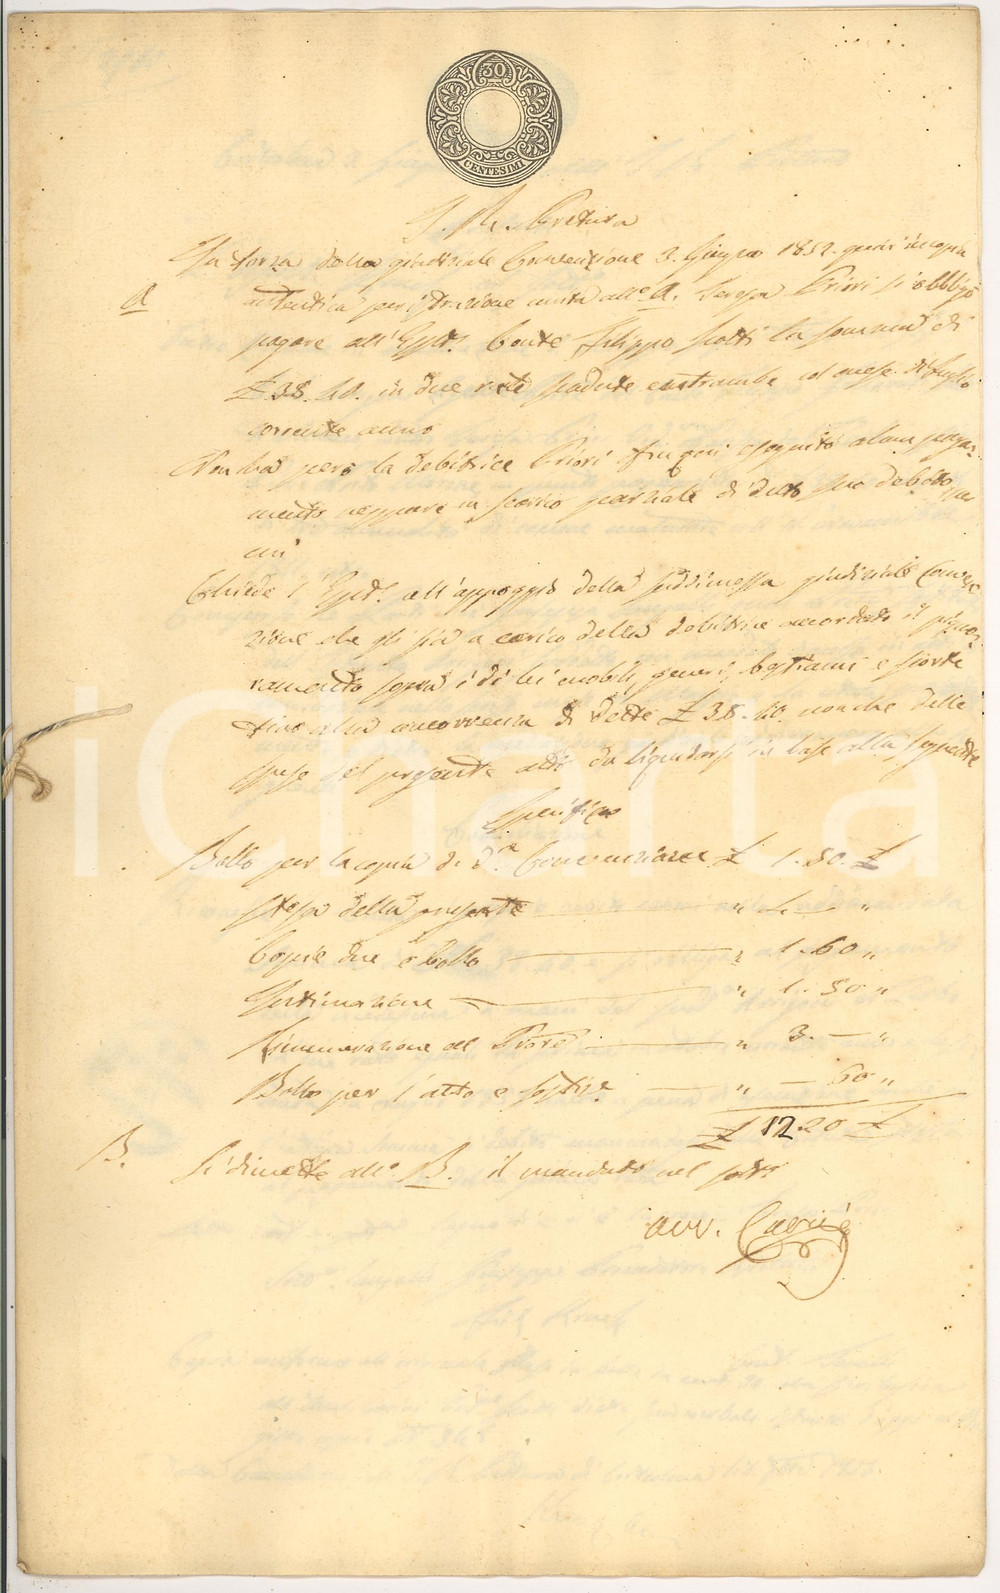 30
CENTESIMI
I. R. Pretura
In forza della giudiziale Convenzione 3. Giugno 1852. quivi in copia
A autentica per estrazione unita all.o A. Teresa Priori si obbligò
pagare all'Esp.te Conte Filippo Scotti la somma di
£ 38. 40. in due rate scadute entrambe col mese di luglio
corrente anno
Non ha però la debitrice Priori fin qui eseguito alcun paga-
mento neppure in sconto parziale di detto suo debito
Chiede l'Esp.te all'appoggio della suddimessa giudiziale Conven-
zione che gli sia a carico della debitrice accordato il pigno-
ramento sopra i di lei mobili, generi, bestiami e scorte
fino alla concorrenza di dette £ 38. 40. nonché delle
spese del presente atto da liquidarsi in base alla seguente
Specifica
Bollo per la copia di d.a Convenzione £ 1. 50. £
Stesa della presente " "
Copie due e bollo " 1. 60 "
Intimazione " 1. 50 "
Rimunerazione al " 3. — "
Bollo per l'atto e " — 60 "
£ 12.20 £
B. Si dimette all.o B. il mandato nel
avv.
iCharta